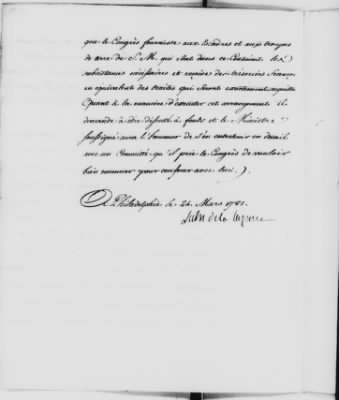 que le Congrès fournisse aux Escadres et aux troupes
de terre de S. M. qui sont dans ce Continent les
subsistances nécessaires et reçoive des trésoriers français
en équivalent des traites qui seront exactement acquittées
Quant à la manière d'exécuter cet arrangement il
demande à être discuté à fonds et le Ministre
soussigné aura l'honneur de s'en entretenir en détail
avec un Committé qu'il prie le Congrès de vouloir
bien nommer pour conférer avec lui.
A Philadelphie le 24. Mars 1781.
Le Ch. de la Luzerne